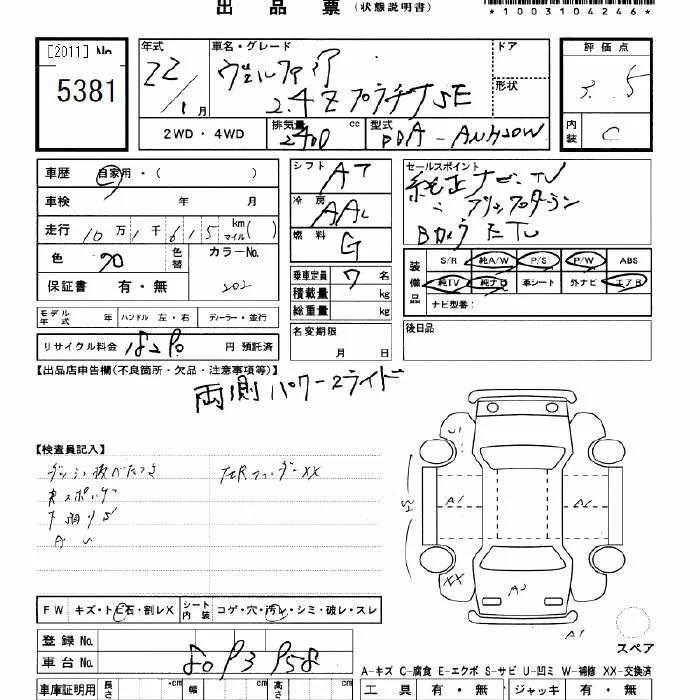 出品票（状態説明書）
*1003104246*
[2011] No
5381
年式
22/1月
車名・グレード
ヴェルファイア
2.4Z プラチナSE
ドア
形状
評価点
3.5
内装
C
2WD・4WD
排気量 2400 cc
型式
DBA-ANH20W
車歴 自家用・（ ）
シフト
AT
セールスポイント
純正ナビ・TV
Bカメラ
車検 年 月
冷房
AAC
走行 10万1千615 km マイル( )
燃料
G
色
70
色替
カラーNo.
202
保証書 有・無
乗車定員 7 名
積載量 kg
総重量 kg
装備品
S/R 純A/W P/S P/W ABS
純TV 純ナビ 革シート 外ナビ エアB
ナビ型番：
モデル年式 年 ハンドル 左・右 ディーラー・並行
名変期限
月 日
後日品
リサイクル料金 円 預託済
【出品店申告欄(不良箇所・欠品・注意事項等)】
両側パワースライド
【検査員記入】
XX
U1
A1
XX
A2
A1
FW キズ・トビ石・割レX シート内装 コゲ・穴・汚レ・シミ・破レ・スレ
登録 No.
車台 No.
8093958
スペア
A-キズ C-腐食 E-エクボ S-サビ U-凹ミ W-補修 XX-交換済
車庫証明用 長さ cm 幅 cm 高さ cm
工具 有・無 ジャッキ 有・無